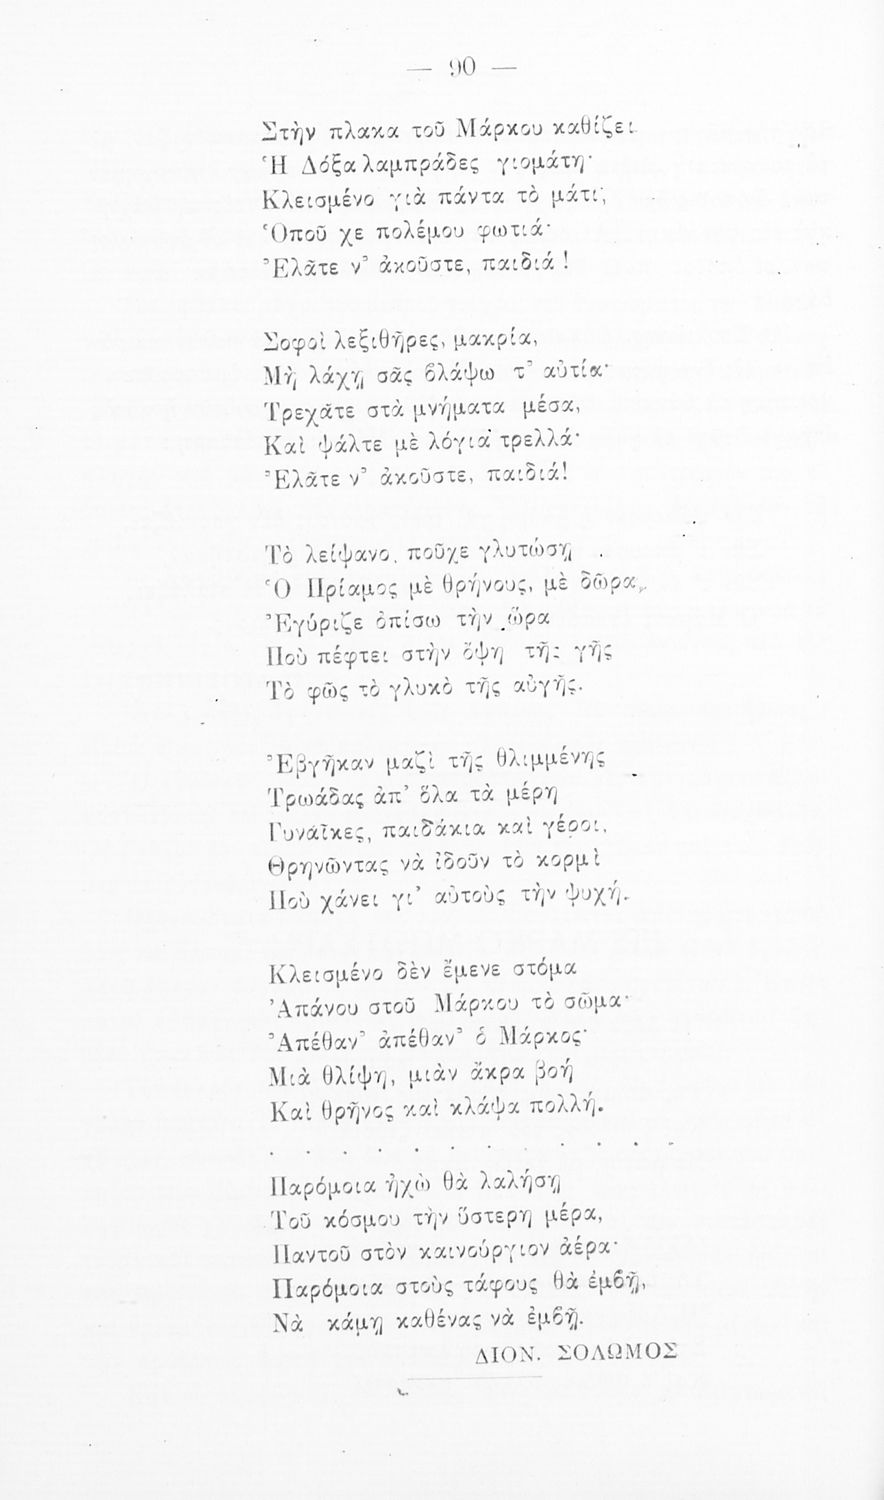 — 90 —
Στὴν πλακα τοῦ Μάρκου καθίζει
Ἡ Δόξα λαμπράδες γιομάτη·
Κλεισμένο γιὰ πάντα τὸ μάτι,
Ὁποῦ χε πολέμου φωτιά·
Ἐλᾶτε ν' ἀκοῦστε, παιδιά !
Σοφοὶ λεξιθῆρες, μακρία,
Μὴ λάχῃ σᾶς βλάψω τ' αὐτία·
Τρεχᾶτε στὰ μνήματα μέσα,
Καὶ ψάλτε μὲ λόγια τρελλά·
Ἐλᾶτε ν' ἀκοῦστε, παιδιά!
Τὸ λείψανο, ποῦχε γλυτώσῃ
Ὁ Πρίαμος μὲ θρήνους, μὲ δῶρα,
Ἐγύριζε ὀπίσω τὴν ὥρα
Ποὺ πέφτει στὴν ὄψη τῆς γῆς
Τὸ φῶς τὸ γλυκὸ τῆς αὐγῆς.
Ἐβγῆκαν μαζὶ τῆς θλιμμένης
Τρωάδας ἀπ' ὅλα τὰ μέρη
Γυναῖκες, παιδάκια καὶ γέροι,
Θρηνῶντας νὰ ἰδοῦν τὸ κορμὶ
Ποὺ χάνει γι' αὐτοὺς τὴν ψυχή.
Κλεισμένο δὲν ἔμενε στόμα
Ἀπάνου στοῦ Μάρκου τὸ σῶμα·
Ἀπέθαν' ἀπέθαν' ὁ Μάρκος·
Μιὰ θλίψη, μιὰν ἄκρα βοή
Καὶ θρῆνος καὶ κλάψα πολλή.
. . . . . . . . . . . .
Παρόμοια ἠχὼ θὰ λαλήσῃ
Τοῦ κόσμου τὴν ὕστερη μέρα,
Παντοῦ στὸν καινούργιον ἀέρα·
Παρόμοια στοὺς τάφους θὰ ἐμβῇ,
Νὰ κάμῃ καθένας νὰ ἐμβῇ.
ΔΙΟΝ. ΣΟΛΩΜΟΣ